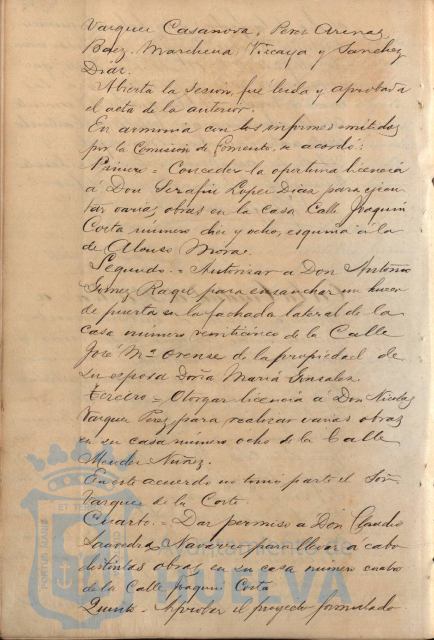 Vazquez Casanova, Perez Arenas,
Baez, Marchena, Vizcaya y Sanchez
Diaz.
Abierta la sesion, fué leida y aprobada
el acta de la anterior.
En armonia con los informes emitidos
por la Comision de Fomento, se acordó:
Primero = Conceder la oportuna licencia
á Don Serafin Lopez Diaz para ejecu-
tar varias obras en la casa Calle Joaquin
Costa numero diez y ocho, esquina á la
de Alonso Mora.
Segundo. = Autorizar a Don Antonio
Gomez Raquel para ensanchar un hueco
de puerta en la fachada lateral de la
casa numero veinticinco de la Calle
José Mª Orense de la propiedad de
su esposa Doña Maria Gonzalez.
Tercero = Otorgar licencia á Don Nicolas
Vazquez Perez para realizar varias obras
en su casa numero ocho de la Calle
Mendez Nuñez.
En este acuerdo no tomó parte el Señor
Vazquez de la Corte.
Cuarto. = Dar permiso á Don Claudio
Saavedra Navarro para llevar á cabo
distintas obras en su casa numero cuatro
de la Calle Joaquin Costa
Quinto = Aprobar el proyecto formulado
PORTUS MARIS
ET TERRAE
Ayuntamiento de
HUELVA